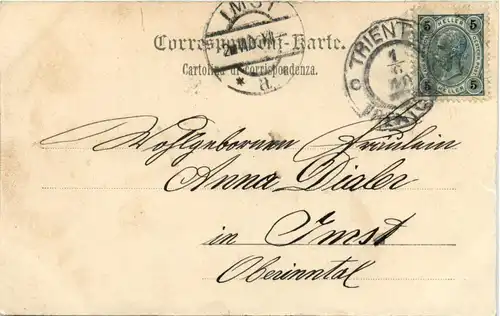 IMST
Correspondenz-Karte.
Cartolina di corrispondenza.
* a.
TRIENT
1
5 HELLER 5
5 HELLER 5
Wohlgebornen Fräulein
Anna Dialer
in Imst
Oberinntal